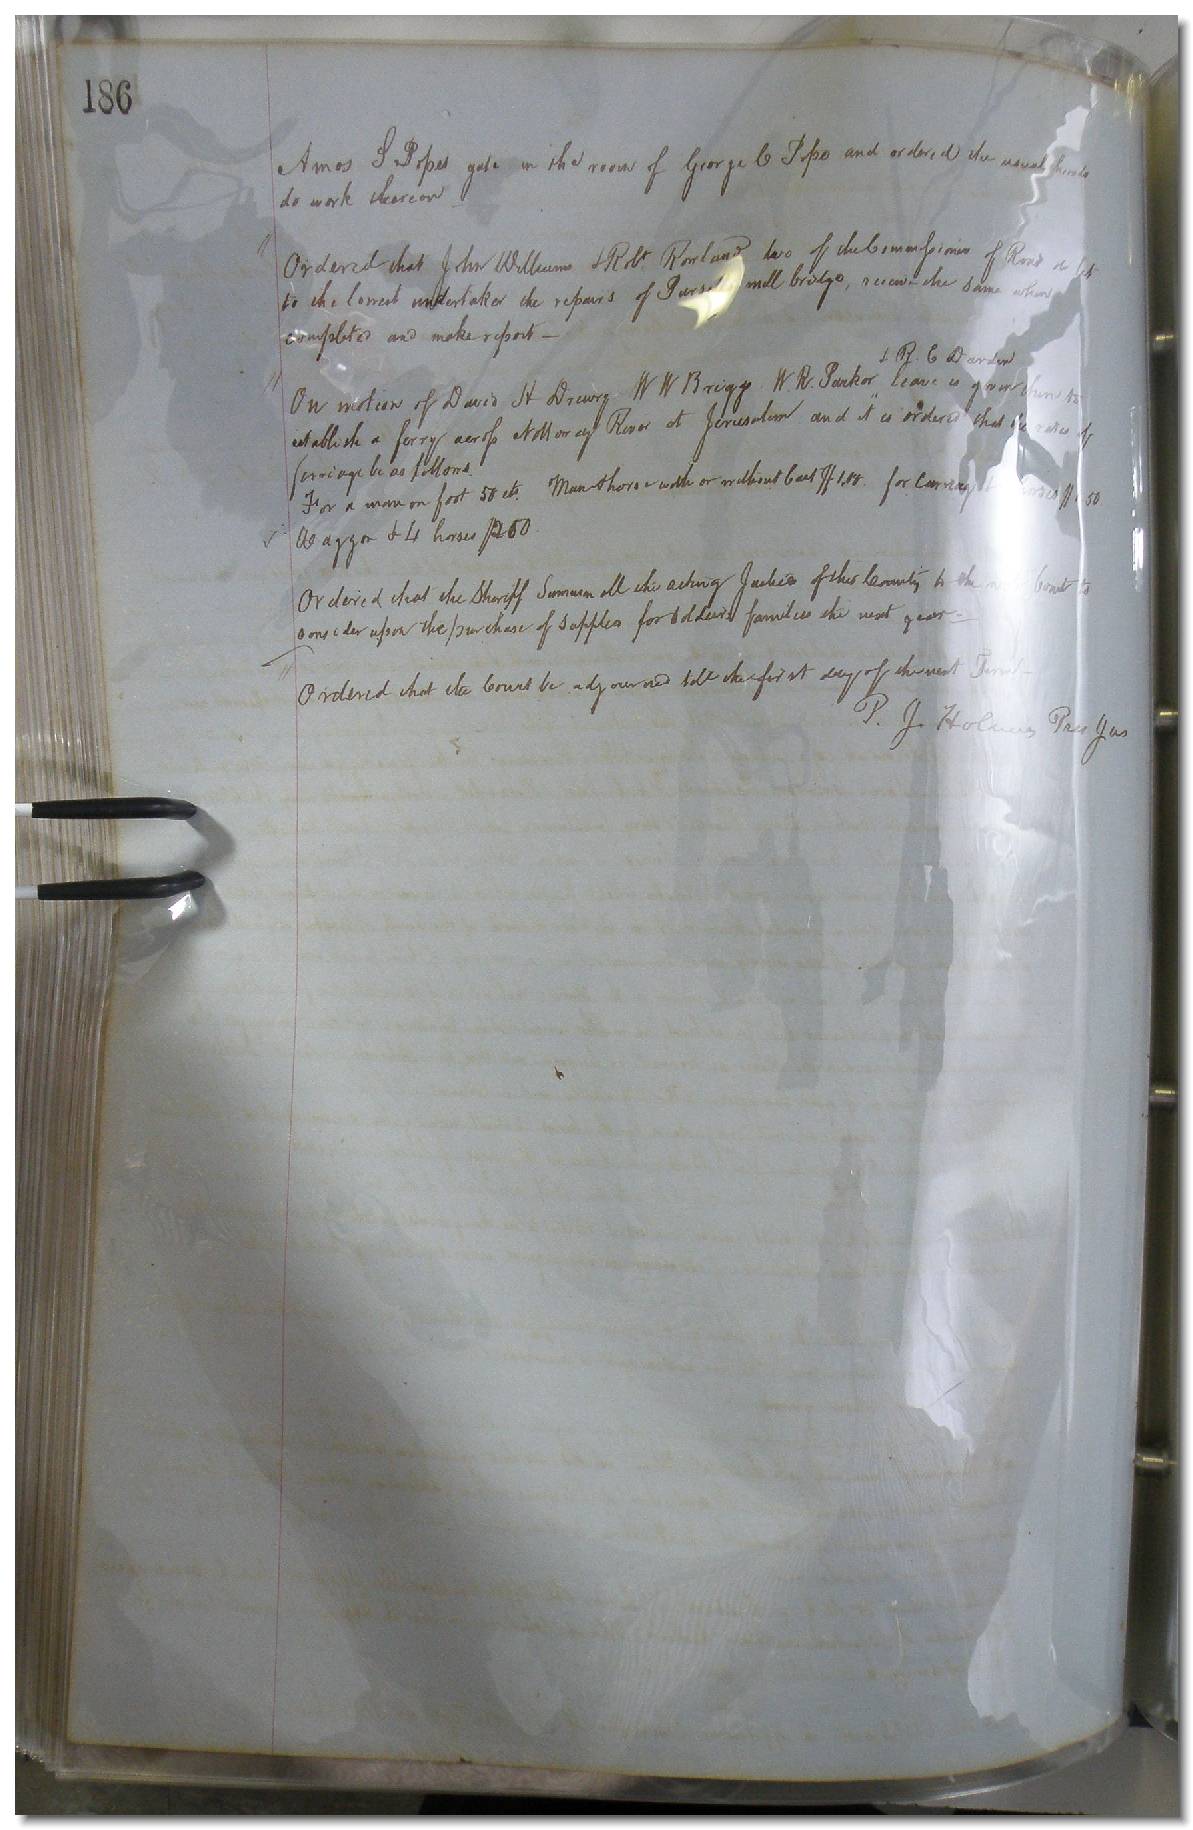 186
Amos S Popes gate in the room of George C Pope and ordered the usual hands
do work thereon
" Ordered that John Williams & Robt Rowland two of the Commissioners of Road do let
to the lowest undertaker the repairs of mill bridge, receive the same when
completed and make report —
& R. C Darden
" On motion of David H Drewry W W Briggs W. R. Parker leave is given them to
establish a ferry across Nottoway River at Jerusalem and it is ordered that the rates of
ferriage be as follows.
For a man on foot 50 cts. Man & horse with or without cart $1.00. for Carriage & horses 50
Waggon & 4 horses $2.50
Ordered that the Sheriff Summon all the acting Justices of this County to the next Court to
consider upon the purchase of supplies for soldiers families the next year —
" Ordered that the Court be adjourned till the first day of the next Term —
P. J. Holmes Pres Jus